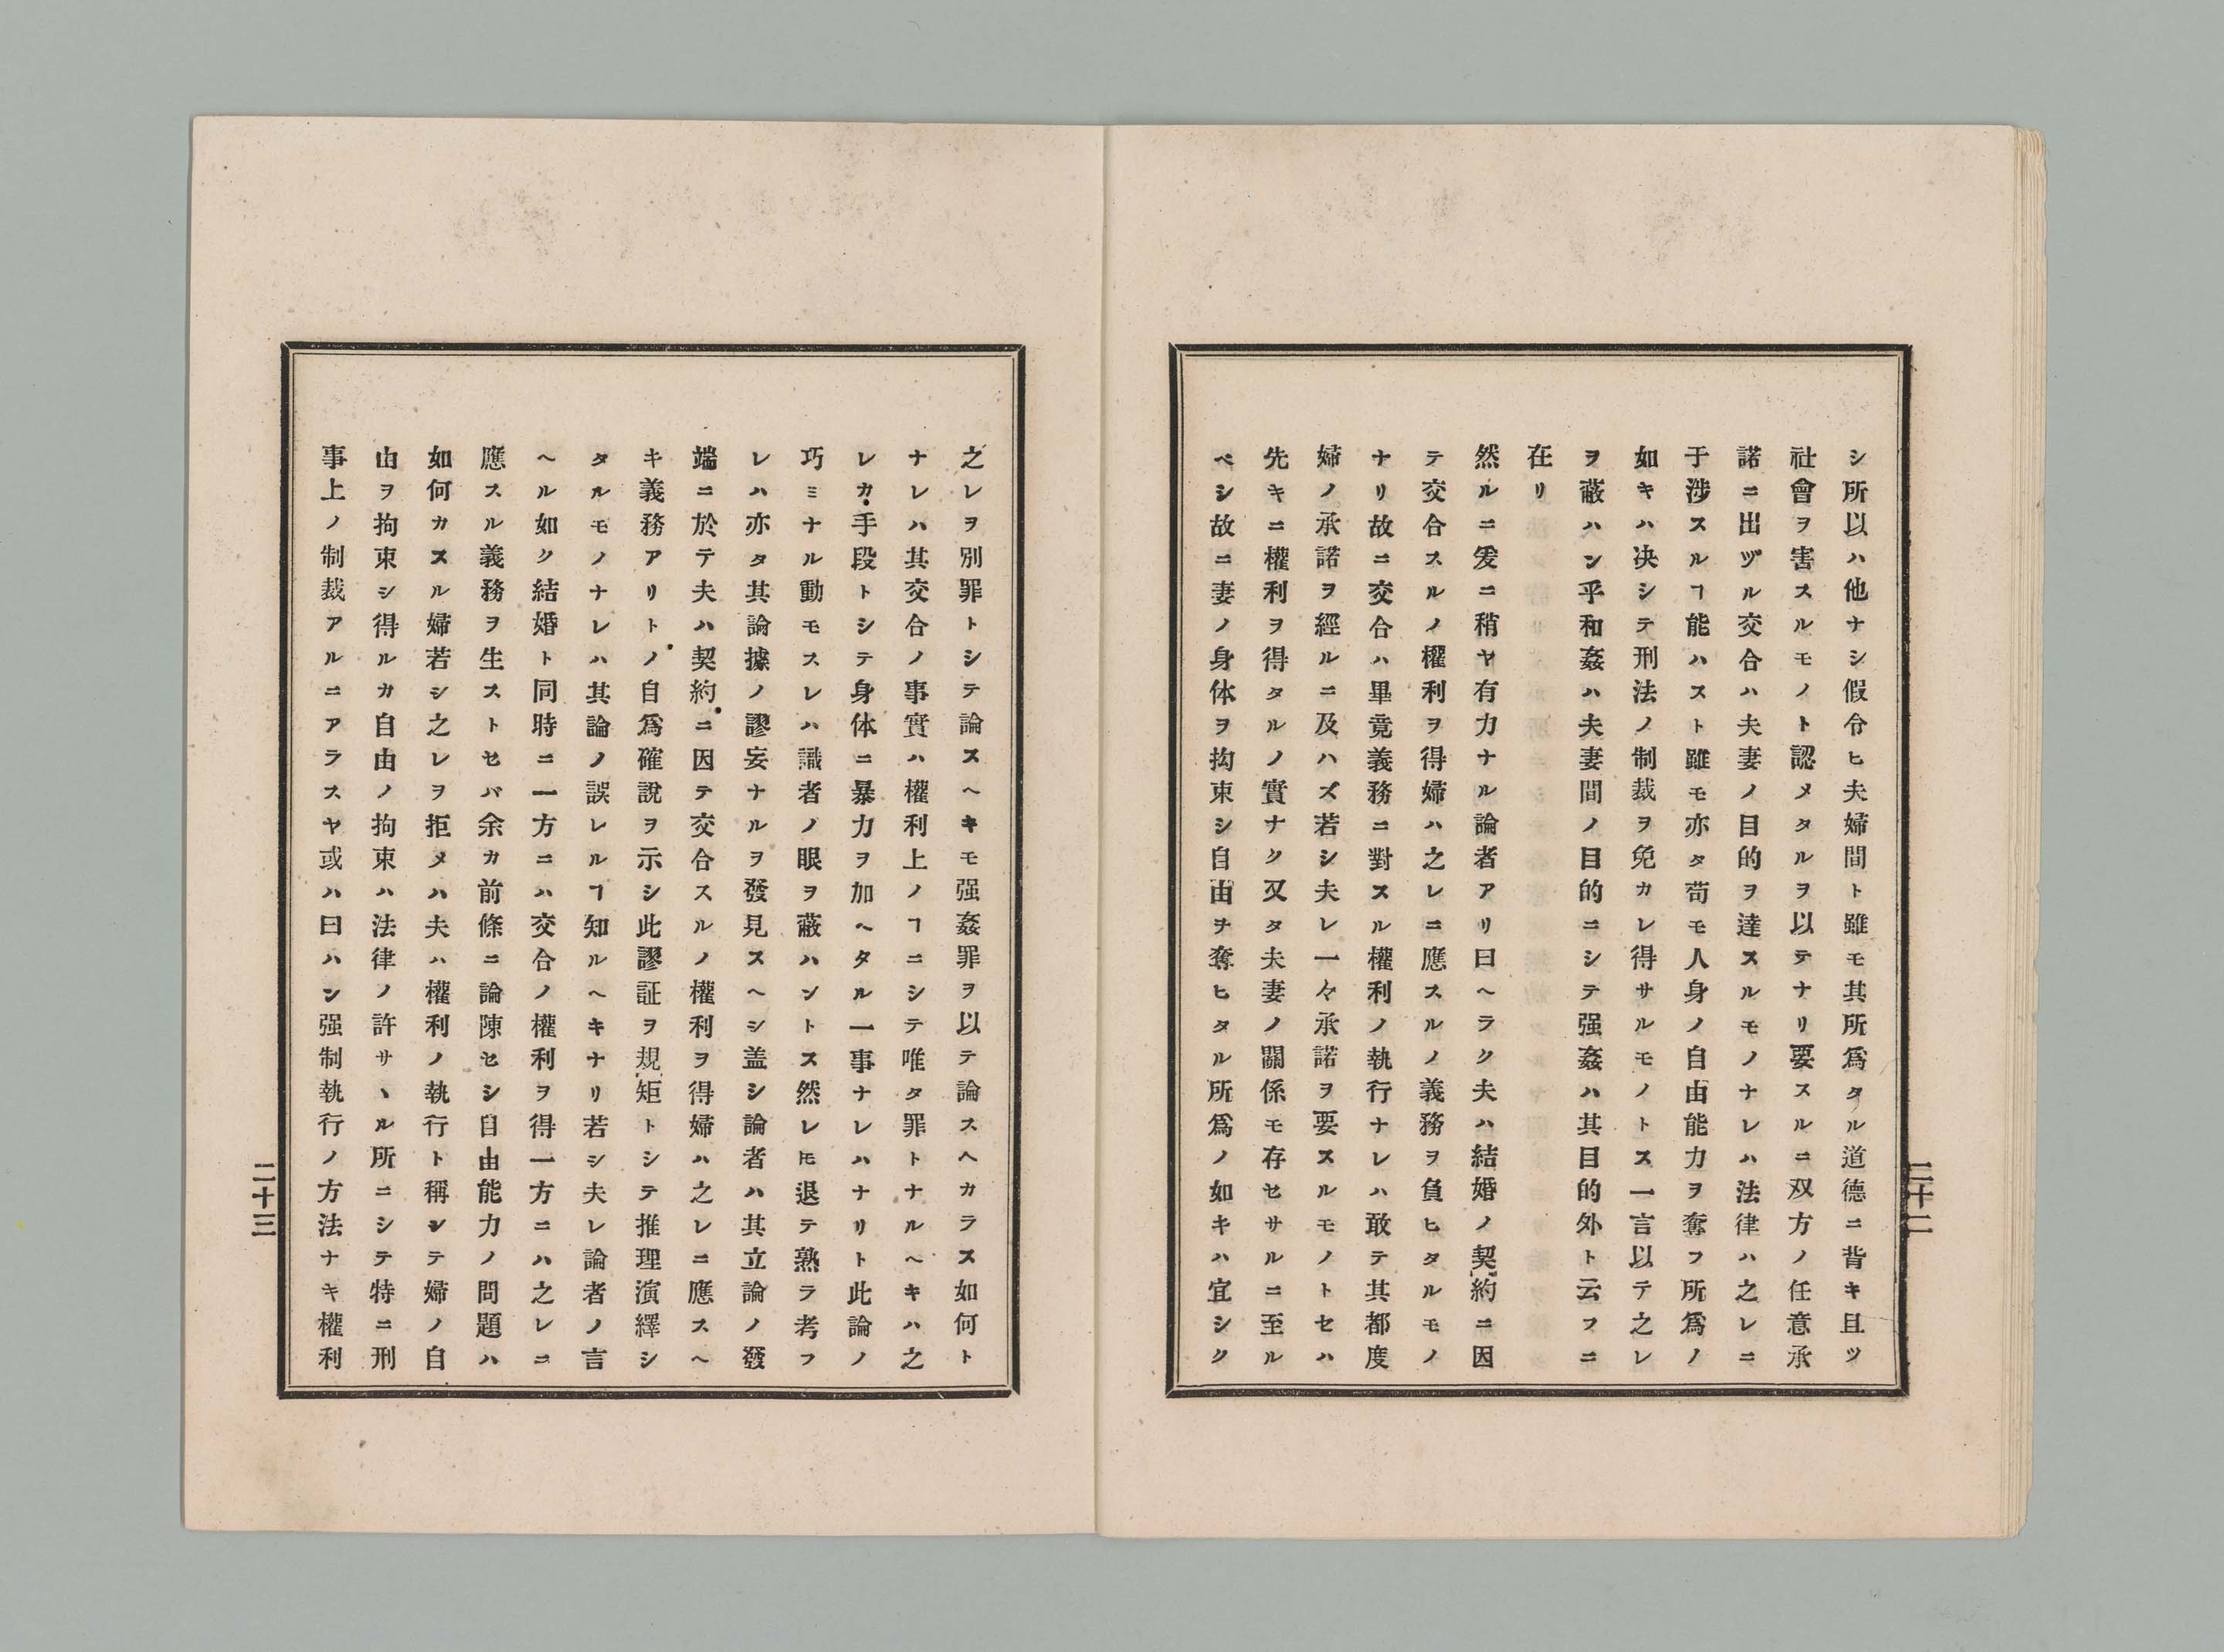 シ所以ハ他ナシ假令ヒ夫婦間ト雖モ其所爲タル道德ニ背キ且ツ
社會ヲ害スルモノト認メタルヲ以テナリ要スルニ双方ノ任意承
諾ニ出ヅル交合ハ夫妻ノ目的ヲ達スルモノナレハ法律ハ之レニ
于涉スルヿ能ハスト雖モ亦タ苟モ人身ノ自由能力ヲ奪フ所爲ノ
如キハ决シテ刑法ノ制裁ヲ免カレ得サルモノトス一言以テ之レ
ヲ蔽ハン乎和姦ハ夫妻間ノ目的ニシテ强姦ハ其目的外ト云フニ
在リ
然ルニ爰ニ稍ヤ有力ナル論者アリ曰ヘラク夫ハ結婚ノ契約ニ因
テ交合スルノ權利ヲ得婦ハ之レニ應スルノ義務ヲ負ヒタルモノ
ナリ故ニ交合ハ畢竟義務ニ對スル權利ノ執行ナレハ敢テ其都度
婦ノ承諾ヲ經ルニ及ハズ若シ夫レ一々承諾ヲ要スルモノトセハ
先キニ權利ヲ得タルノ實ナク又タ夫妻ノ關係モ存セサルニ至ル
ベシ故ニ妻ノ身体ヲ拘束シ自由ヲ奪ヒタル所爲ノ如キハ宜シク
二十二
之レヲ別罪トシテ論スヘキモ强姦罪ヲ以テ論スヘカラス如何ト
ナレハ其交合ノ事實ハ權利上ノヿニシテ唯タ罪トナルヘキハ之
レカ手段トシテ身体ニ暴力ヲ加ヘタル一事ナレハナリト此論ノ
巧ミナル動モスレハ識者ノ眼ヲ蔽ハントス然レ𪜈退テ熟ラ考フ
レハ亦タ其論據ノ謬妄ナルヲ發見スヘシ盖シ論者ハ其立論ノ發
端ニ於テ夫ハ契約ニ因テ交合スルノ權利ヲ得婦ハ之レニ應スヘ
キ義務アリトノ自爲確說ヲ示シ此謬証ヲ規矩トシテ推理演繹シ
タルモノナレハ其論ノ誤レルヿ知ルヘキナリ若シ夫レ論者ノ言
ヘル如ク結婚ト同時ニ一方ニハ交合ノ權利ヲ得一方ニハ之レニ
應スル義務ヲ生ストセバ余カ前條ニ論陳セシ自由能力ノ問題ハ
如何カスル婦若シ之レヲ拒メハ夫ハ權利ノ執行ト稱シテ婦ノ自
由ヲ拘束シ得ルカ自由ノ拘束ハ法律ノ許サヽル所ニシテ特ニ刑
事上ノ制裁アルニアラスヤ或ハ曰ハン强制執行ノ方法ナキ權利
二十三